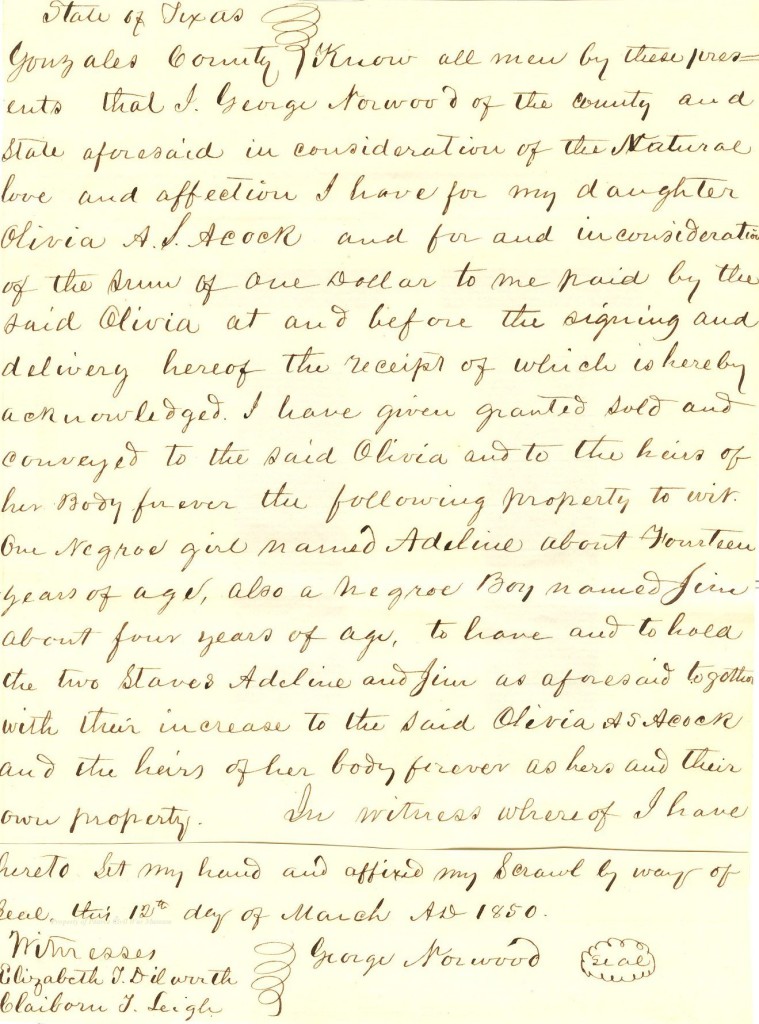 State of Texas
Gonzales County } Know all men by these pres=
ents that I. George Norwood of the county and
State aforesaid in consideration of the Natural
love and affection I have for my daughter
Olivia A. S. Acock and for and in consideration
of the sum of One Dollar to me paid by the
said Olivia at and before the signing and
delivery hereof the receipt of which is hereby
acknowledged. I have given granted sold and
conveyed to the said Olivia and to the heirs of
her Body forever the following property to wit.
One Negroe girl named Adeline about Fourteen
years of age, also a negroe Boy named Jim
about four years of age, to have and to hold
the two Slaves Adeline and Jim as aforesaid together
with their increase to the said Olivia A S Acock
and the heirs of her body forever as hers and their
own property. In witness whereof I have
hereto Set my hand and affixed my Scrawl by way of
Seal. this 12th day of March AD 1850.
Witnesses
George Norwood seal
Elizabeth T. Dilworth
Claiborn T. Leigh